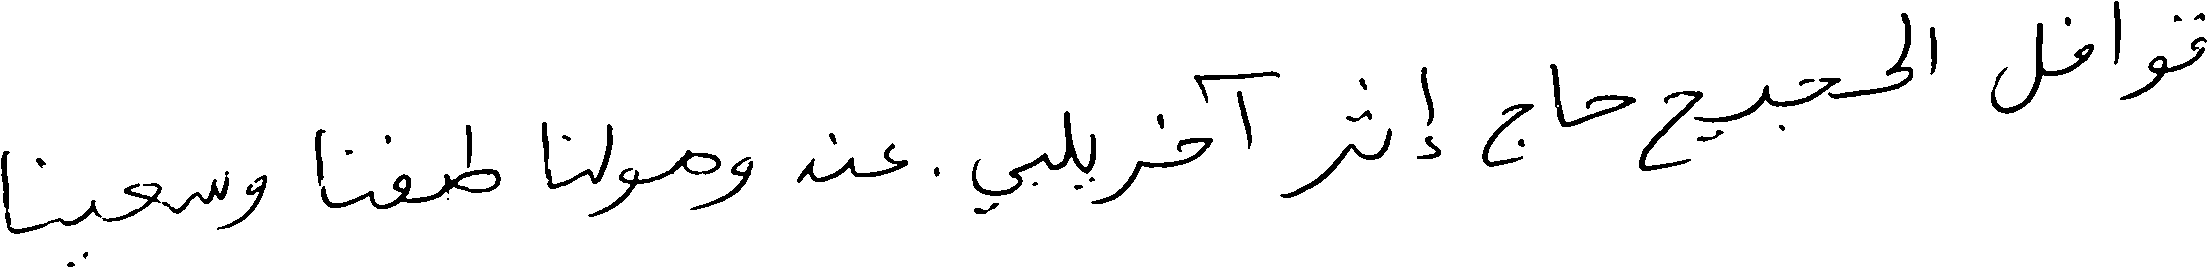 قوافل الحجيج حاج إثر آخر يلبي . عند وصولنا طفنا وسعينا